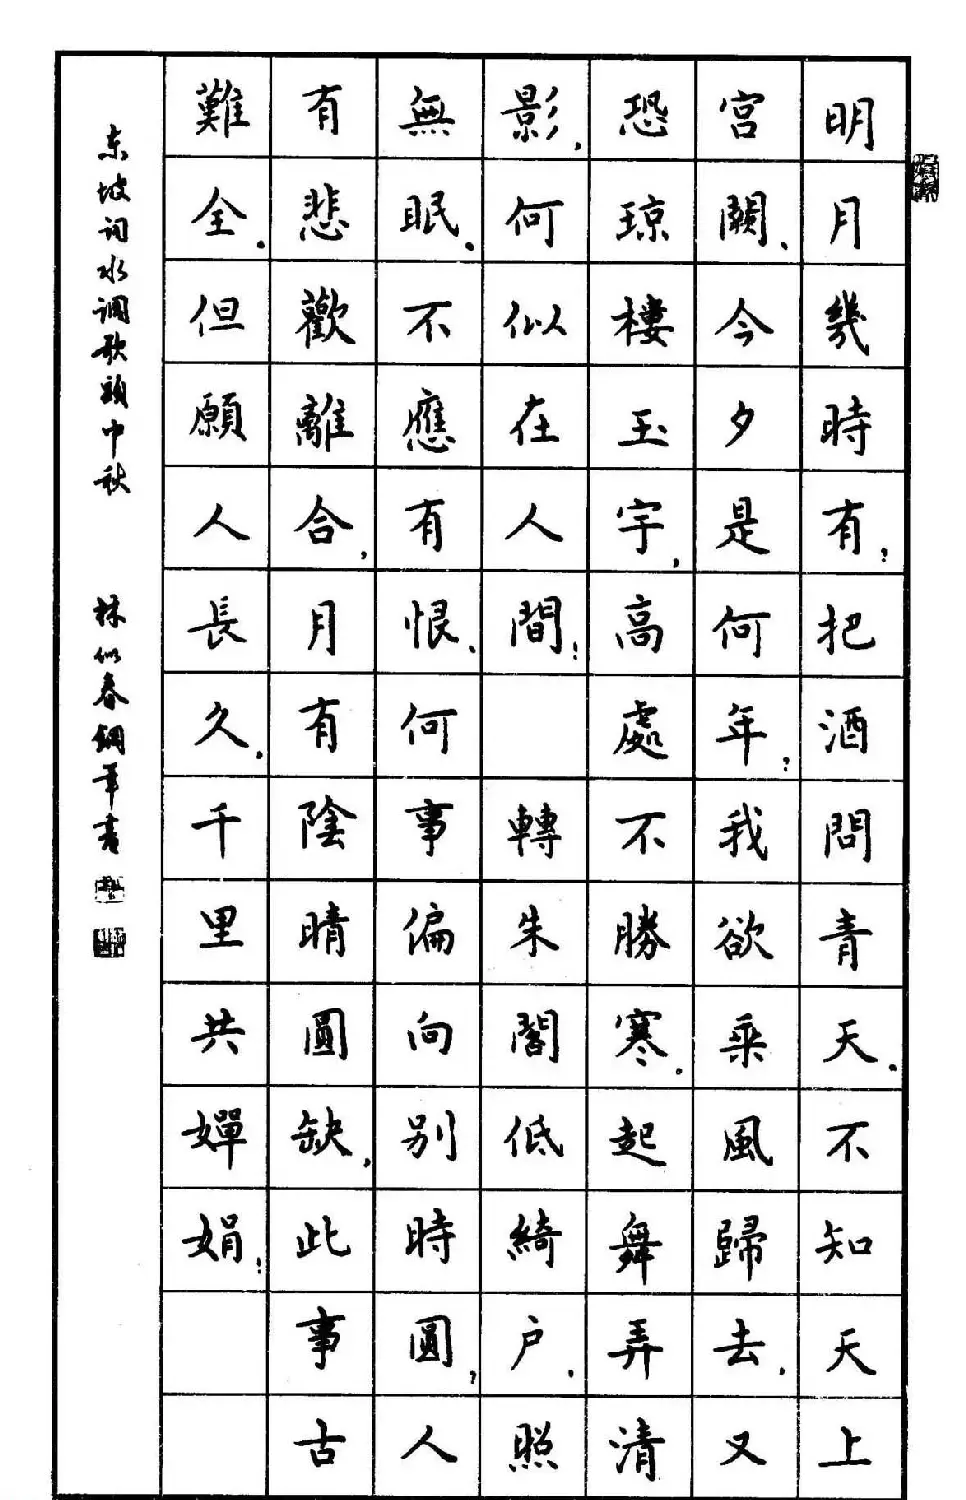 明月幾時有？把酒問青天。不知天上
宮闕、今夕是何年？我欲乘風歸去，又
恐瓊樓玉宇，高處不勝寒。起舞弄清
影，何似在人間？ 轉朱閣低綺户，照
無眠。不應有恨、何事偏向別時圓？人
有悲歡離合，月有陰晴圓缺，此事古
難全。但願人長久，千里共嬋娟！
东坡词水调歌頭中秋 林似春鋼筆書